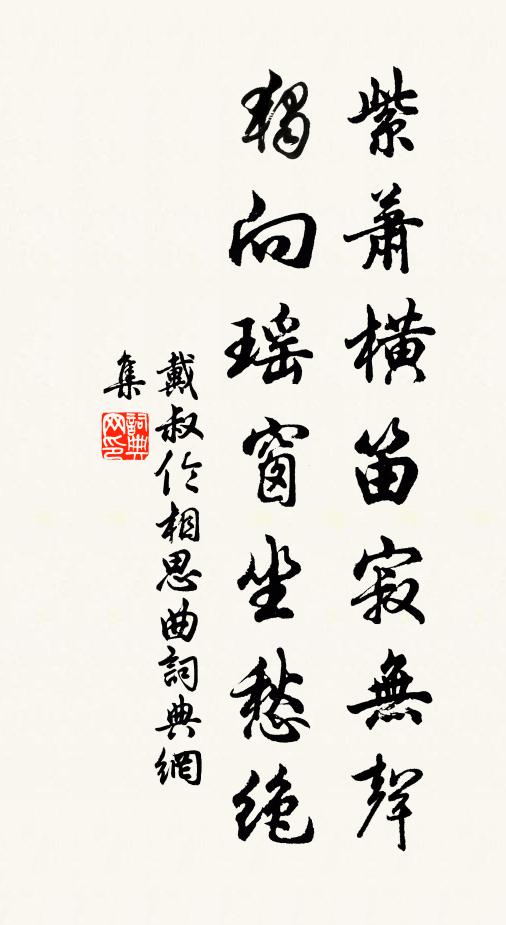 紫蕭橫笛寂無聲
獨向瑤窗坐愁絶
戴叔伦相思曲詞典網
集
詞典网印